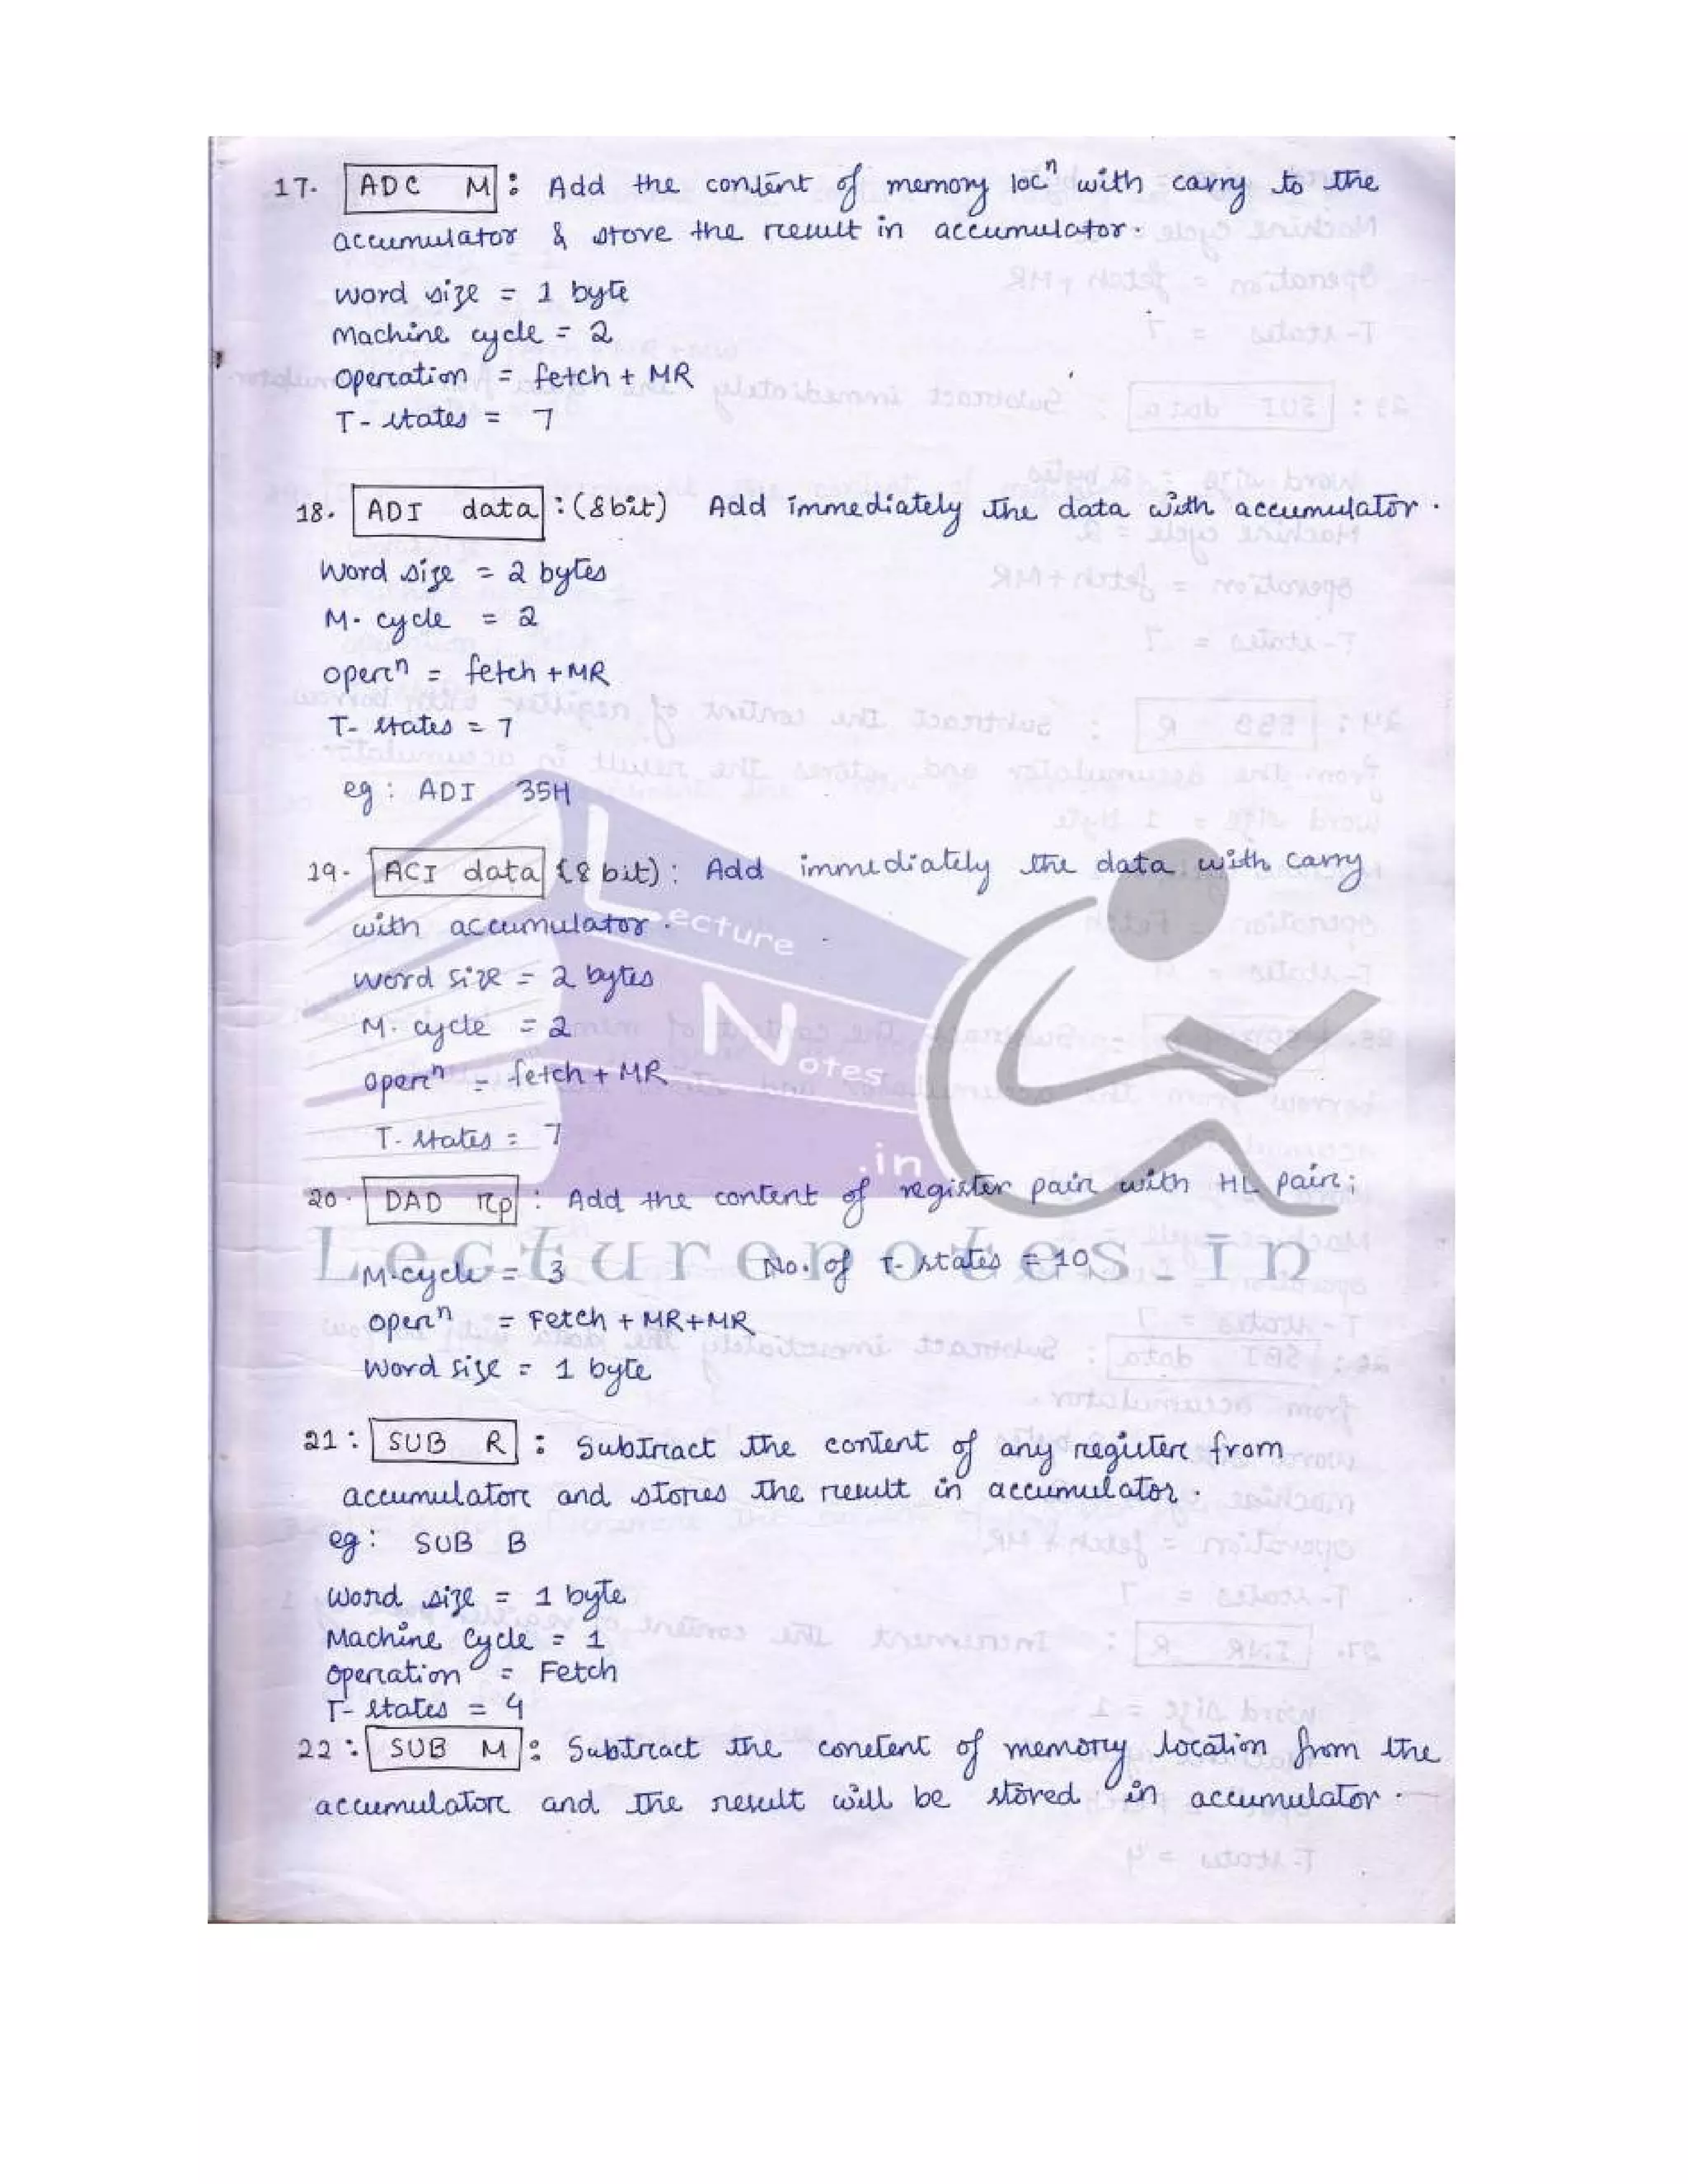 17. ADC M : Add the content of memory locn with carry to the
accumulator & store the result in accumulator.
word size = 1 byte
Machine cycle = 2
operation = fetch + MR
T- states = 7
18. ADI data : (8bit) Add immediately the data with accumulator.
Word size = 2 bytes
M. cycle = 2
opern = fetch + MR
T- states = 7
eg : ADI 35H
19. ACI data (8 bit) : Add immediately the data with carry
with accumulator.
word size = 2 bytes
M. cycle = 2
opern = fetch + MR
T- states = 7
20. DAD rp : Add the content of register pair with HL pair;
M.cycle = 3 No. of T- states = 10
opern = Fetch + MR+MR
Word size = 1 byte
21 : SUB R : Subtract the content of any register from
accumulator and stores the result in accumulator.
eg : SUB B
Word size = 1 byte
Machine Cycle = 1
operation = Fetch
T- states = 4
22 : SUB M : Subtract the conetent of memory location from the
accumulator and the result will be stored in accumulator.
Lecture
Notes
.in
Lecturenotes.in